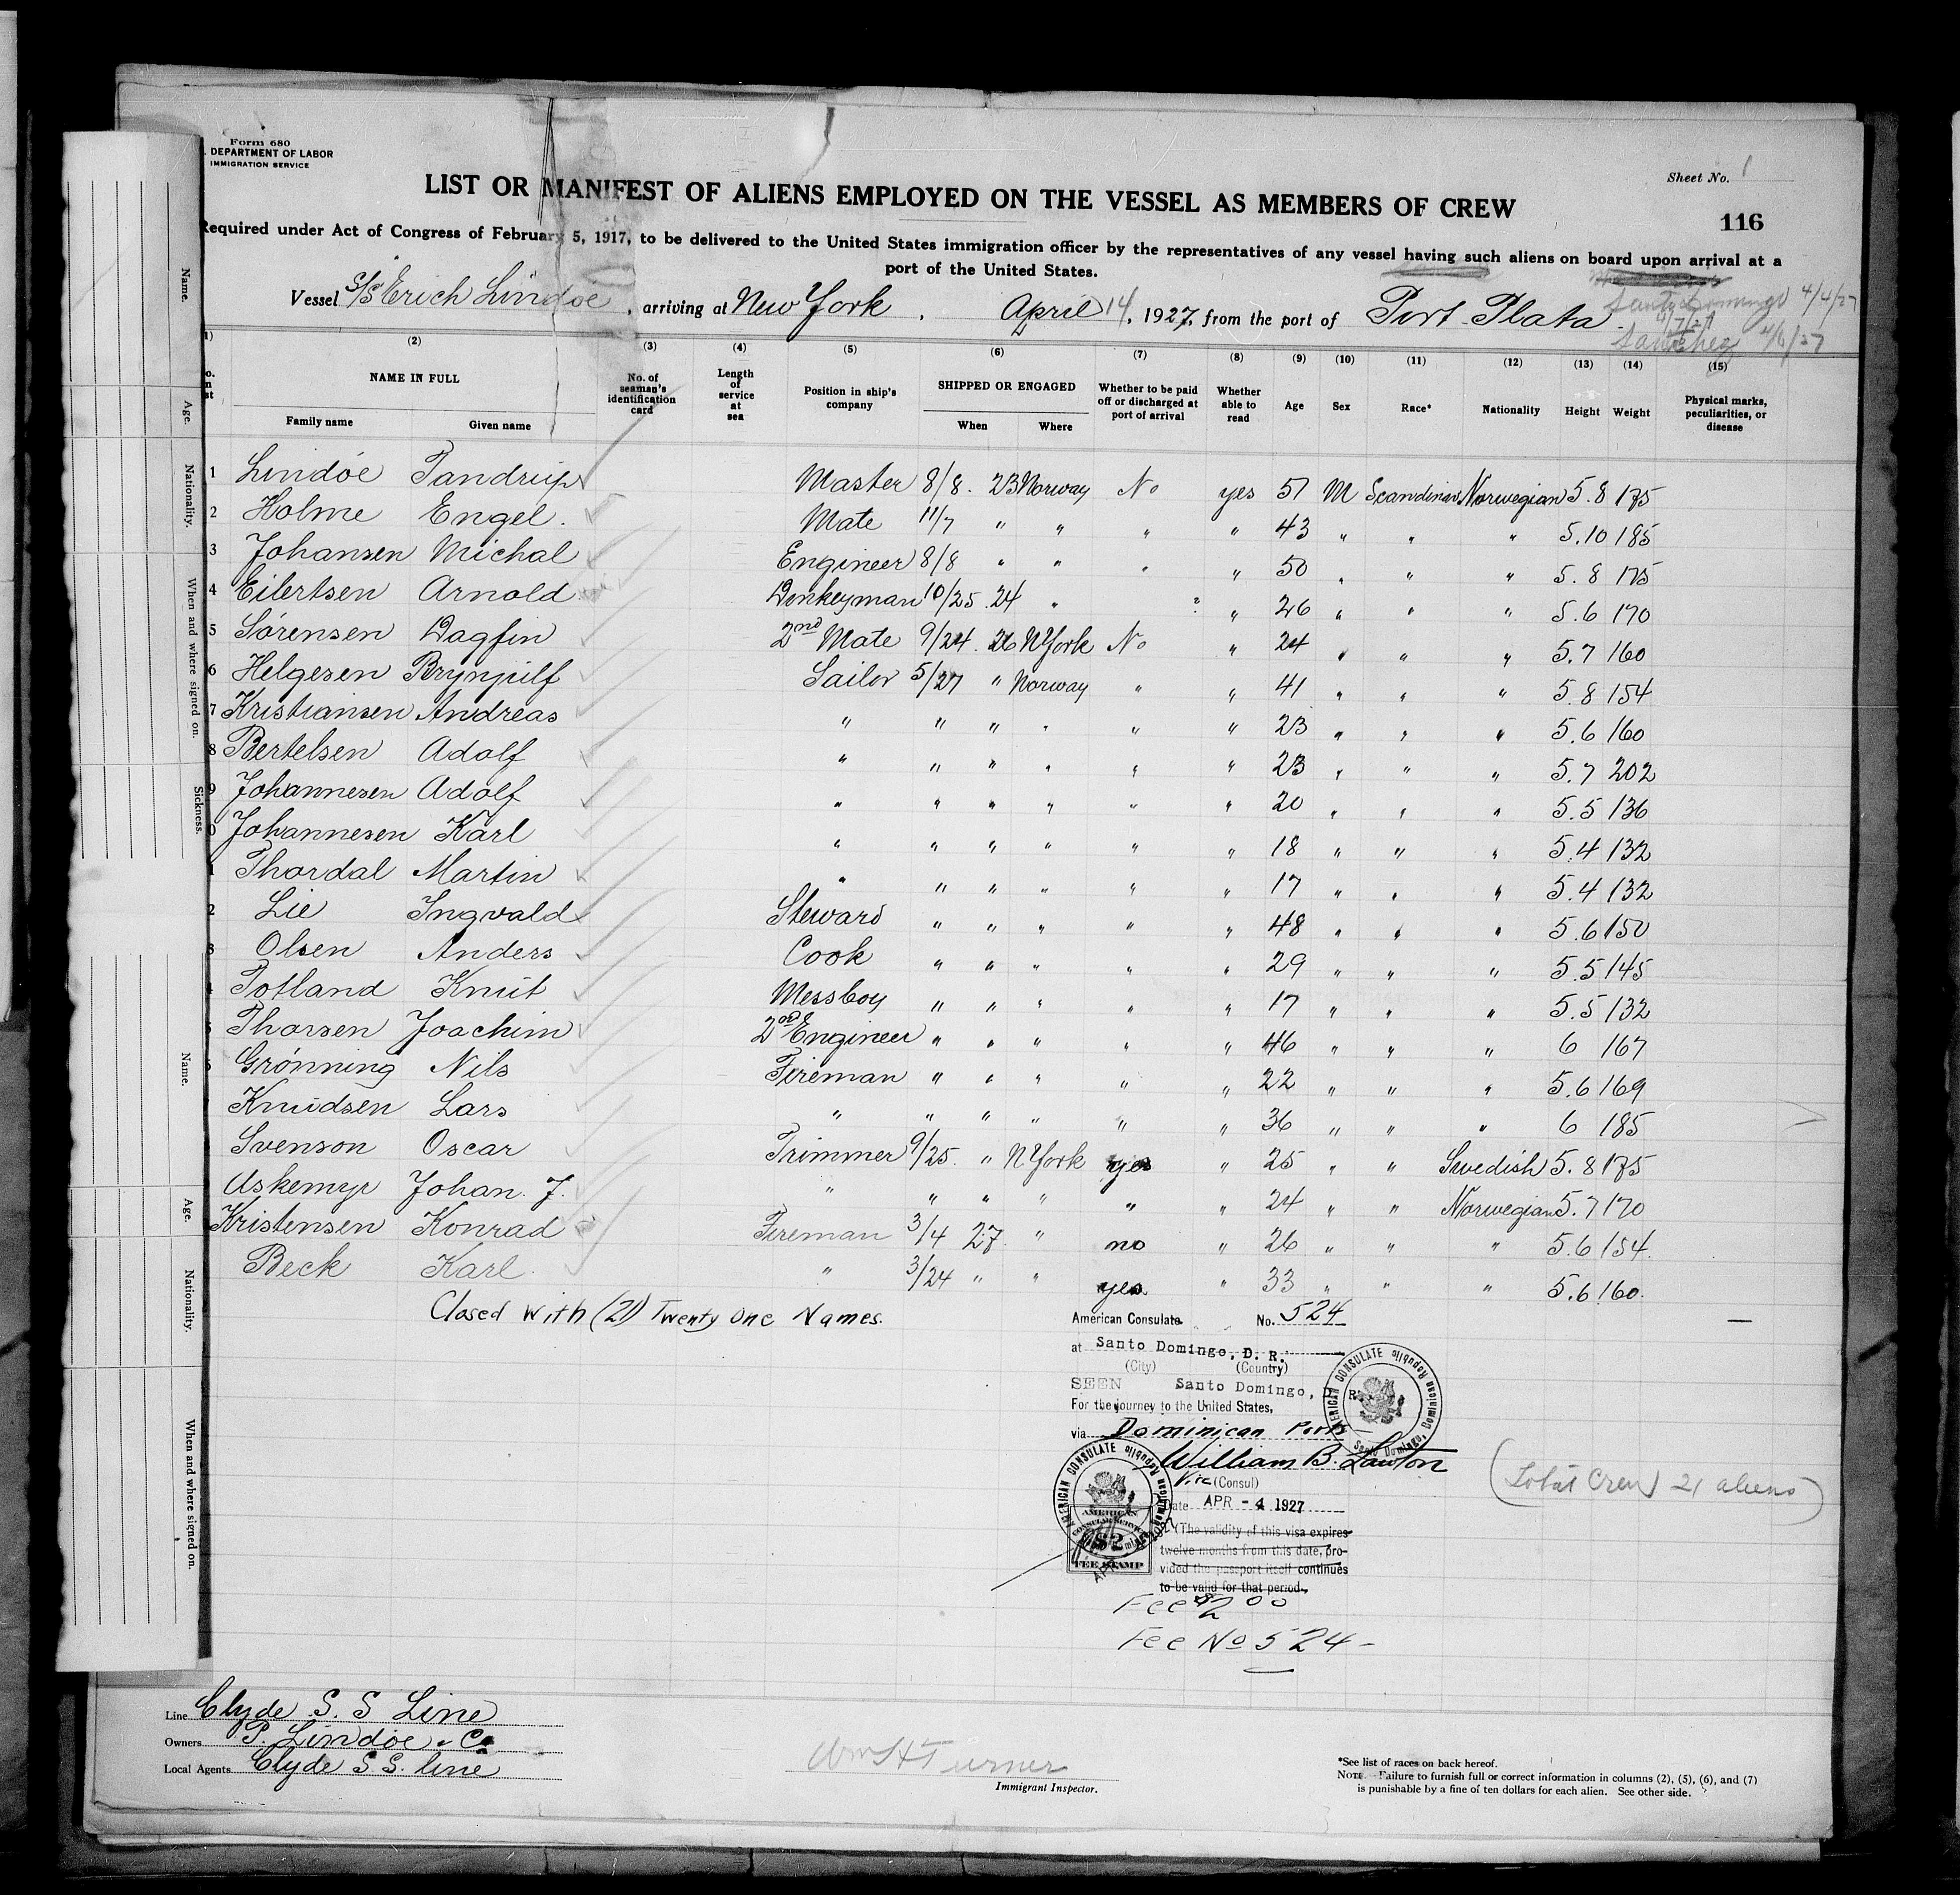 Form 680
. DEPARTMENT OF LABOR
IMMIGRATION SERVICE
Sheet No. 1
LIST OR MANIFEST OF ALIENS EMPLOYED ON THE VESSEL AS MEMBERS OF CREW
116
Required under Act of Congress of February 5, 1917, to be delivered to the United States immigration officer by the representatives of any vessel having such aliens on board upon arrival at a
port of the United States.
Vessel S/S Erich Lindöe , arriving at New York , April 14, 1927, from the port of Port Plata.
Santo Domingo 4/4/27
4/7/27
Sanchez 4/6/27
(2) (3) (4) (5) (6) (7) (8) (9) (10) (11) (12) (13) (14) (15)
NAME IN FULL
Family name Given name
No. of seaman's identification card
Length of service at sea
Position in ship's company
SHIPPED OR ENGAGED
When Where
Whether to be paid off or discharged at port of arrival
Whether able to read
Age Sex Race* Nationality Height Weight
Physical marks, peculiarities, or disease
1 Lindöe Tandrup Master 8/8. 23 Norway No yes 51 M Scandinav Norwegian 5.8 175
2 Holme Engel. Mate 11/7 " " " " 43 " " " 5.10 185
3 Johansen Michal Engineer 8/8 " " " " 50 " " " 5.8 175
4 Eilertsen Arnold Donkeyman 10/25.24 " " " 26 " " " 5.6 170
5 Sörensen Dagfin 2nd Mate 9/24. 26 N York No " 24 " " " 5.7 160
6 Helgesen Brynjulf Sailor 5/27 " Norway " " 41 " " " 5.8 154
7 Kristiansen Andreas " " " " " " 23 " " " 5.6 160
8 Bertelsen Adolf " " " " " " 23 " " " 5.7 202
9 Johannesen Adolf " " " " " " 20 " " " 5.5 136
0 Johannesen Karl " " " " " " 18 " " " 5.4 132
1 Thordal Martin " " " " " " 17 " " " 5.4 132
2 Lie Ingvald Steward " " " " " 48 " " " 5.6 150
3 Olsen Anders Cook " " " " " 29 " " " 5.5 145
Totland Knut Messboy " " " " " 17 " " " 5.5 132
Thorsen Joachim 2nd Engineer " " " " " 46 " " " 6 167
Grönning Nils Fireman " " " " " 22 " " " 5.6 169
Knudsen Lars " " " " " " 36 " " " 6 185
Svenson Oscar Trimmer 9/25. " N York yes " 25 " " Swedish 5.8 175
Askemyr Johan. J. " " " " " " 24 " " Norwegian 5.7 170
Kristensen Konrad Fireman 3/4 27. " no " 26 " " " 5.6 154.
Beck Karl. " 3/24 " " yes " 33 " " " 5.6 160.
Closed With (21) Twenty One Names.
American Consulate No. 524
at Santo Domingo, D. R.
(City) (Country)
SEEN Santo Domingo, D R
For the journey to the United States,
via Dominican Ports
William B. Lawton
Vice (Consul)
Date APR - 4 1927
(The validity of this visa expires
twelve months from this date, pro-
vided the passport itself continues
to be valid for that period.
Fee $2 00
Fee No 524 -
AMERICAN CONSULATE Santo Domingo, Dominican Republic
AMERICAN CONSULATE Dominican Republic
AMERICAN CONSULAR SERVICE
$2
FEE STAMP
(Total Crew 21 aliens)
Line Clyde S. S Line
Owners P. Lindöe & Co
Local Agents Clyde S S. line
Wm H Turner
Immigrant Inspector.
*See list of races on back hereof.
NOTE.—Failure to furnish full or correct information in columns (2), (5), (6), and (7)
is punishable by a fine of ten dollars for each alien. See other side.
Name.
Age.
Nationality.
When and where signed on.
Sickness.
Name.
Age.
Nationality.
When and where signed on.